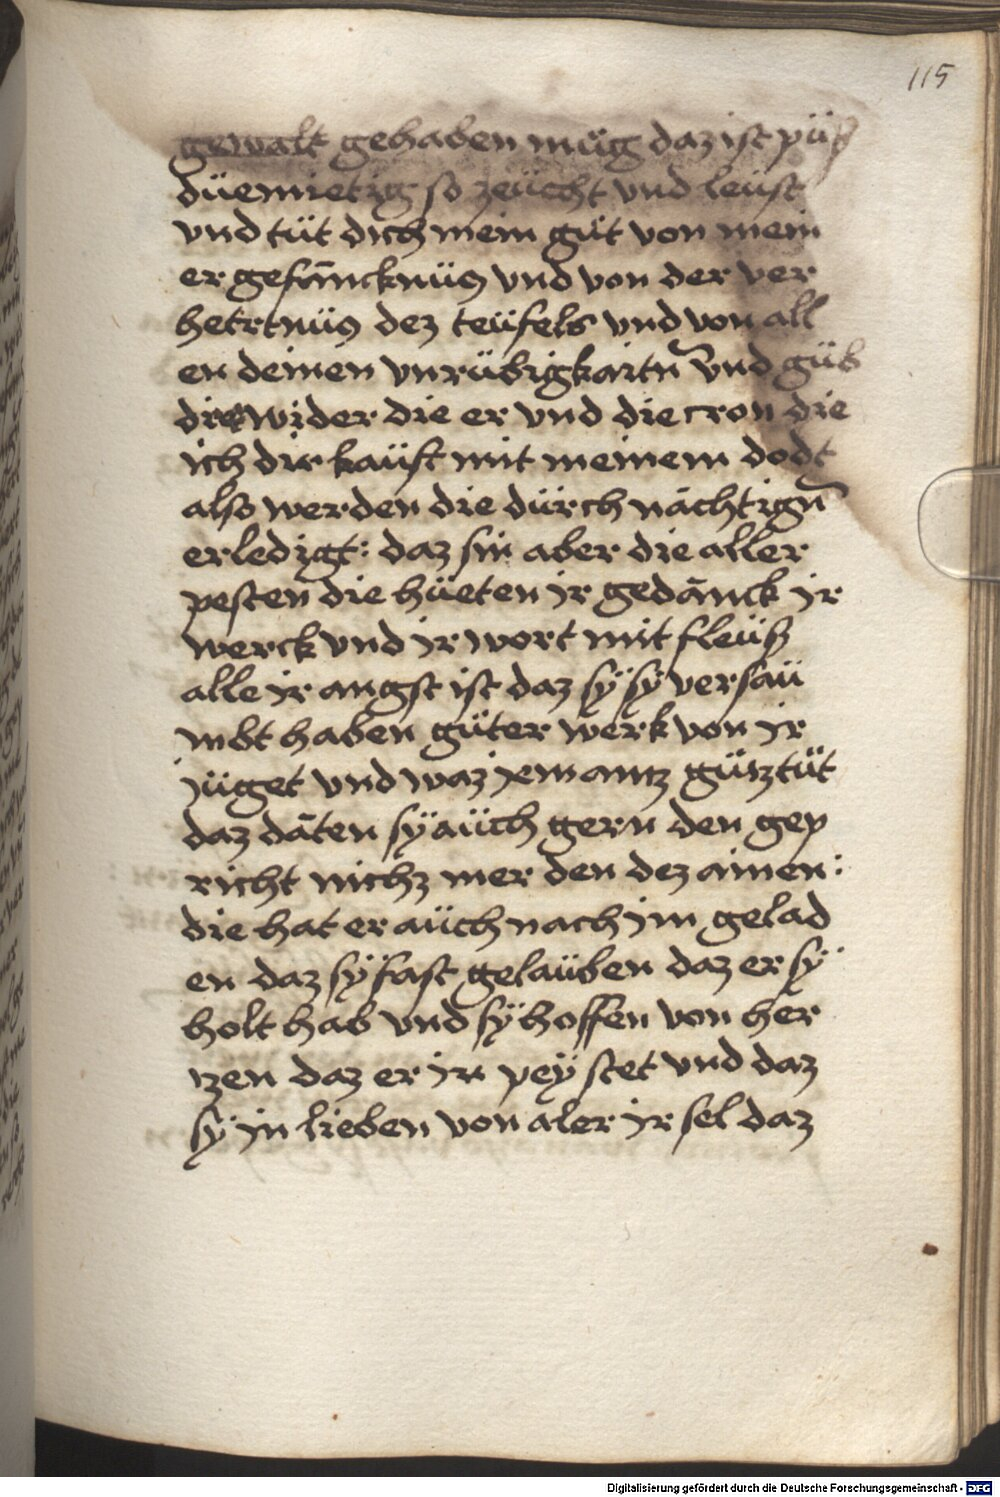 115
gewalt gehaben müg daz ist püß
düemietig so zeücht vnd leüst
vnd tüt dich mein güt von mein
er gefāncknüs vnd von der ver
hetrtnüs dez teüfels vnd von all
en deinen vnrübigkaitn̄ vnd güb
dir wider die er vnd die cron die
ich dir kaüft mit meinem dodt
also werden die dürch nächtign̄
erledigt: daz sin aber die aller
pesten die hüeten ir gedānck ir
werck vnd ir wort mit fleüß
alle ir angst ist daz sÿ sÿ versaü
mbt haben güter werk von ir
jüget vnd waz iemantz gütz tüt
daz däten sÿ aüch gern den gep
richt nichz mer den dez ainen:
die hat er aüch nach im gelad
en daz sÿ fast gelaüben daz er sÿ
holt hab vnd sÿ hoffen von her
tzen daz er in peÿ stet vnd daz
sÿ in lieben von aler ir sel daz
Digitalisierung gefördert durch die Deutsche Forschungsgemeinschaft - DFG